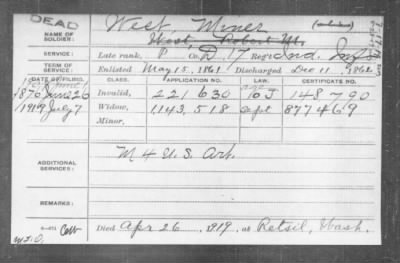 DEAD
West, Miner
NAME OF SOLDIER:
SERVICE: Late rank, P Co. D, 17 Reg't Ind. Inf
TERM OF SERVICE: Enlisted May 15, 1861 Discharged Dec 11 1862
DATE OF FILING. CLASS. APPLICATION NO. CERTIFICATE NO.
1876 June 26 Invalid, 221 630 148 790
1919 July 7 Widow, 1143,518 877469
Minor,
ADDITIONAL SERVICES: M 4 U.S. Art.
REMARKS:
Died Apr 26, 1919, at Retsil, Wash.